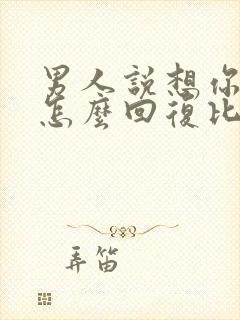 男人説想你
怎麼回復比
弄笛